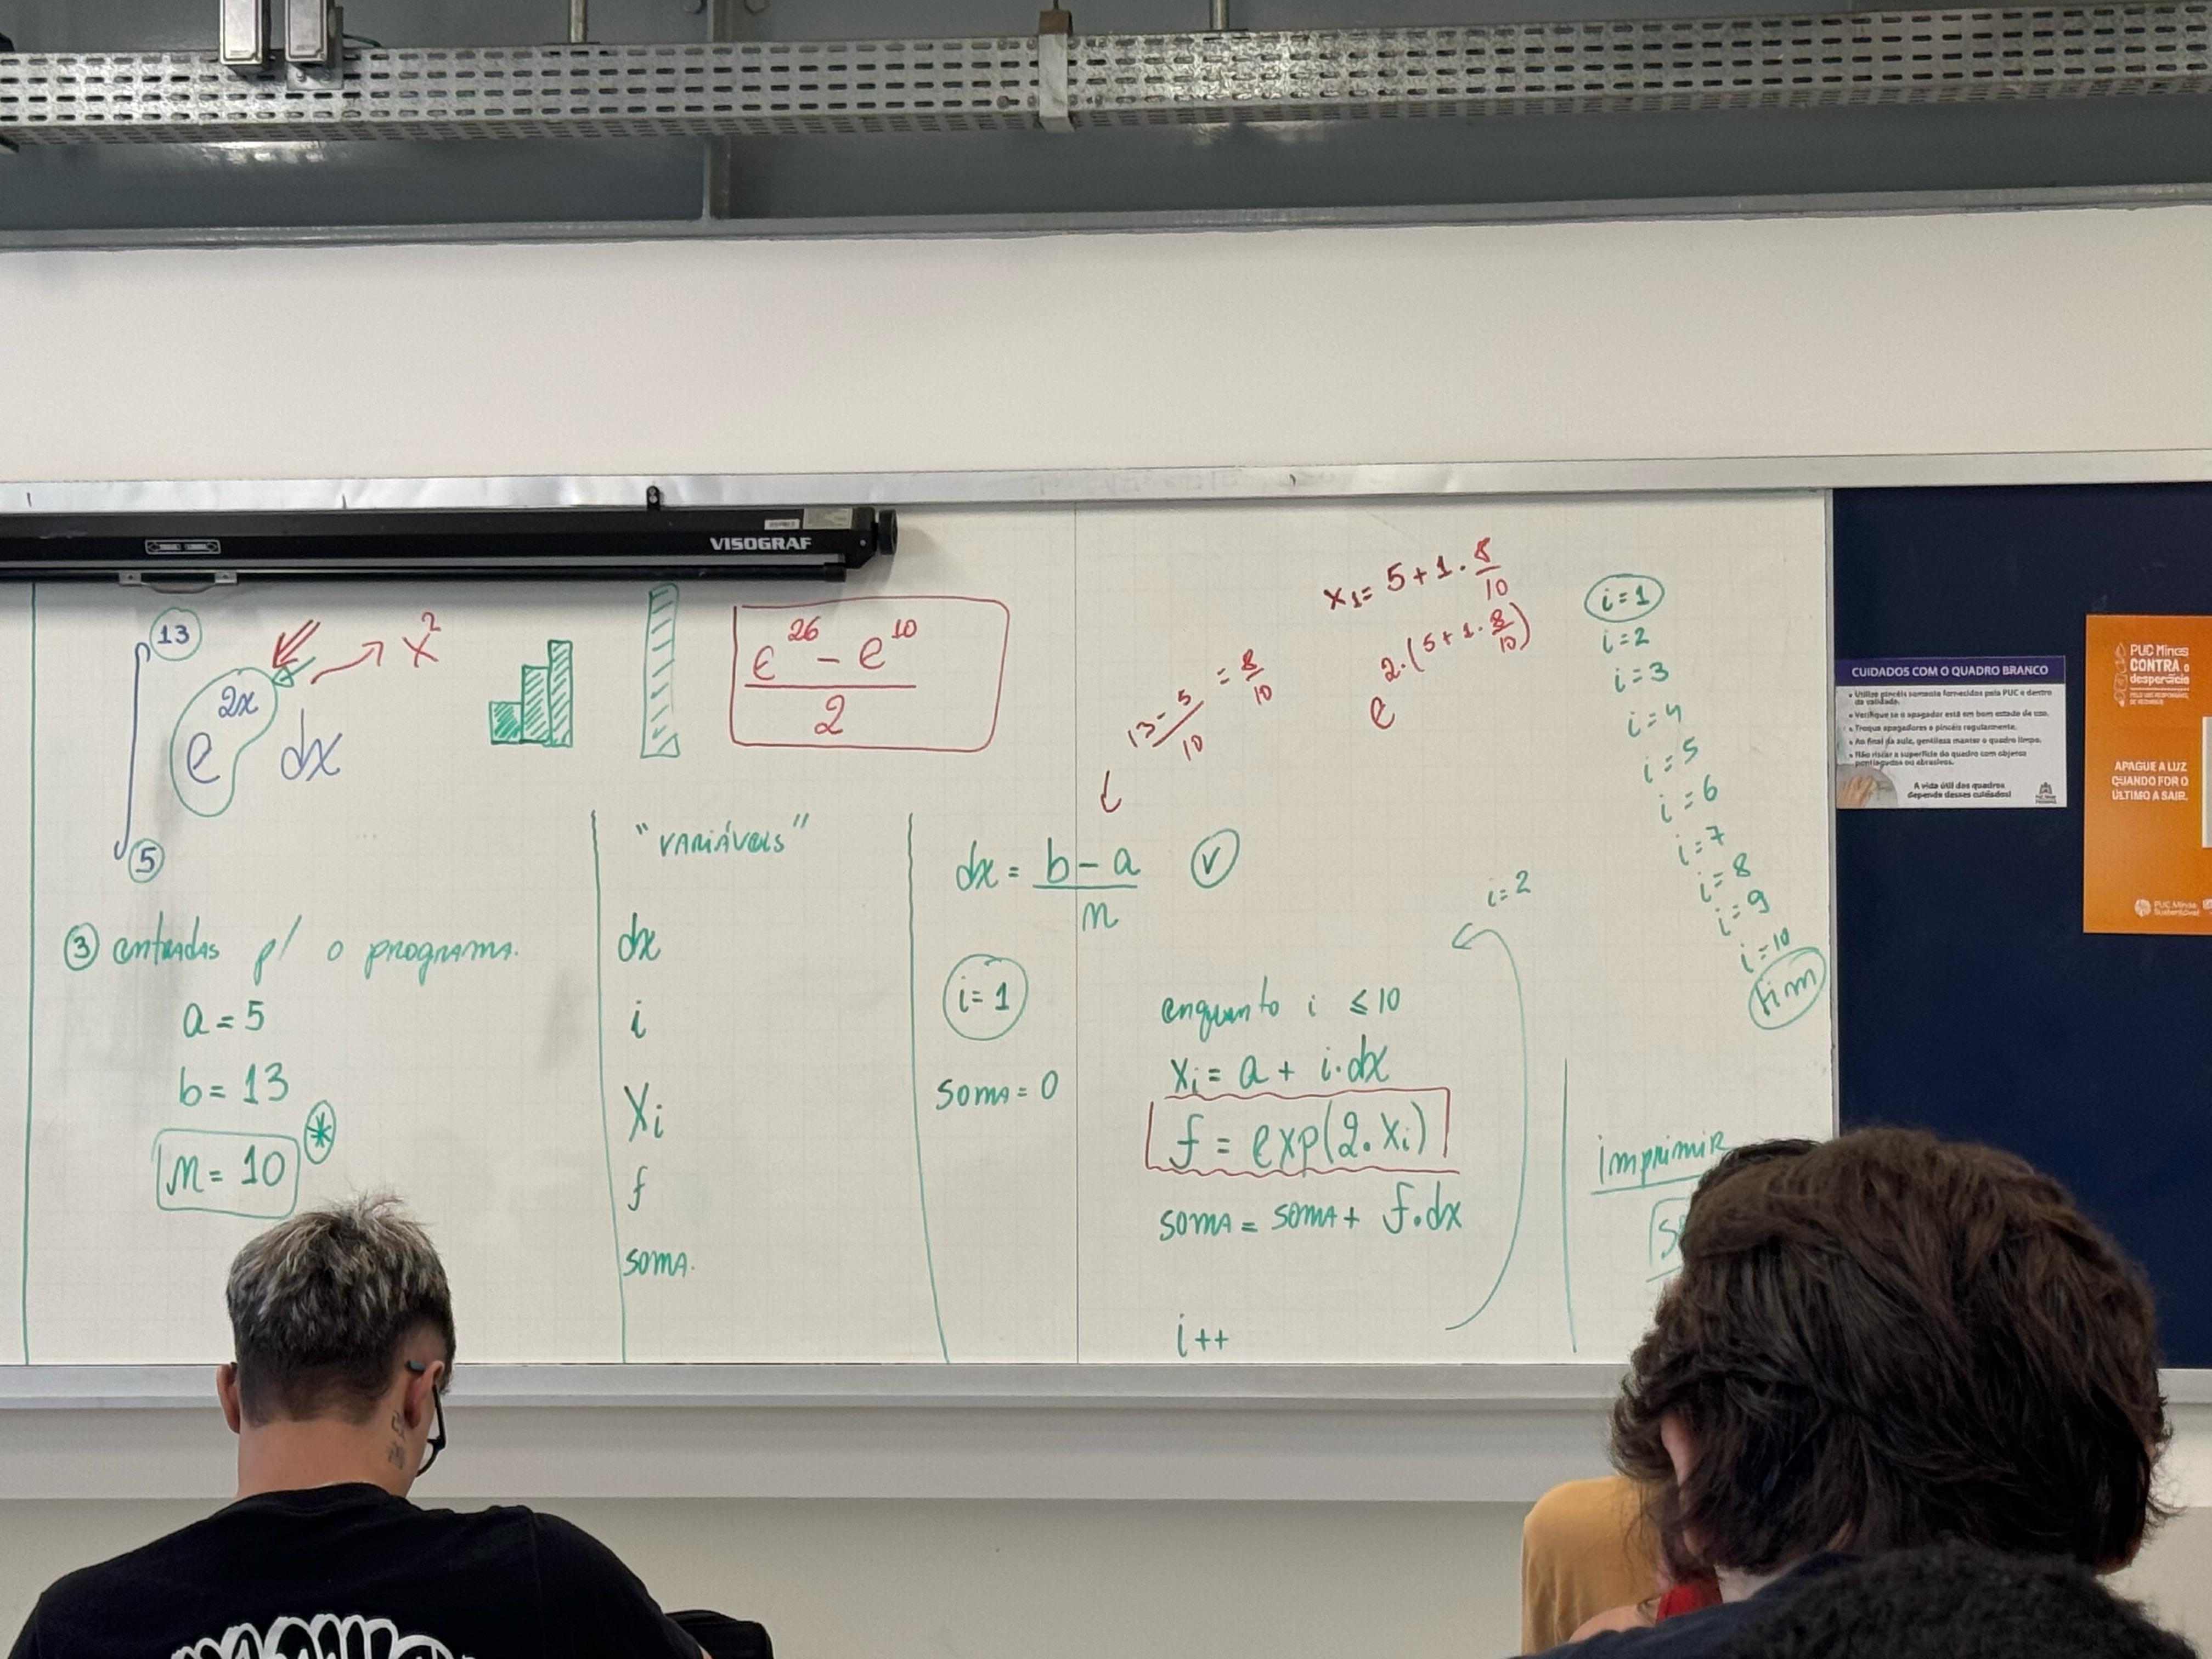 VISOGRAF
13
5
e^2x dx
x^2
e^26 - e^10
2
13-5 = 8
10 10
x1 = 5 + 1 . 8
10
e^2.(5 + 1 . 8/10)
i=1
i=2
i=3
i=4
i=5
i=6
i=7
i=8
i=9
i=10
Fim
3 entradas p/ o programa.
a = 5
b = 13
n = 10 *
"VARIÁVEIS"
dx
i
Xi
f
soma.
dx = b - a
n
V
i = 1
soma = 0
i=2
enquanto i ≤ 10
Xi = a + i.dx
f = exp(2.Xi)
soma = soma + f.dx
i++
imprimir
CUIDADOS COM O QUADRO BRANCO
• Utilize pincéis somente fornecidos pela PUC e dentro
da validade.
• Verifique se o apagador está em bom estado de uso.
• Troque apagadores e pincéis regularmente.
• Ao final da aula, gentileza manter o quadro limpo.
• Não riscar a superfície do quadro com objetos
pontiagudos ou abrasivos.
A vida útil dos quadros
depende desses cuidados!
PUC Minas
CONTRA o
desperdício
APAGUE A LUZ
QUANDO FOR O
ÚLTIMO A SAIR.
PUC Minas
Sustentável